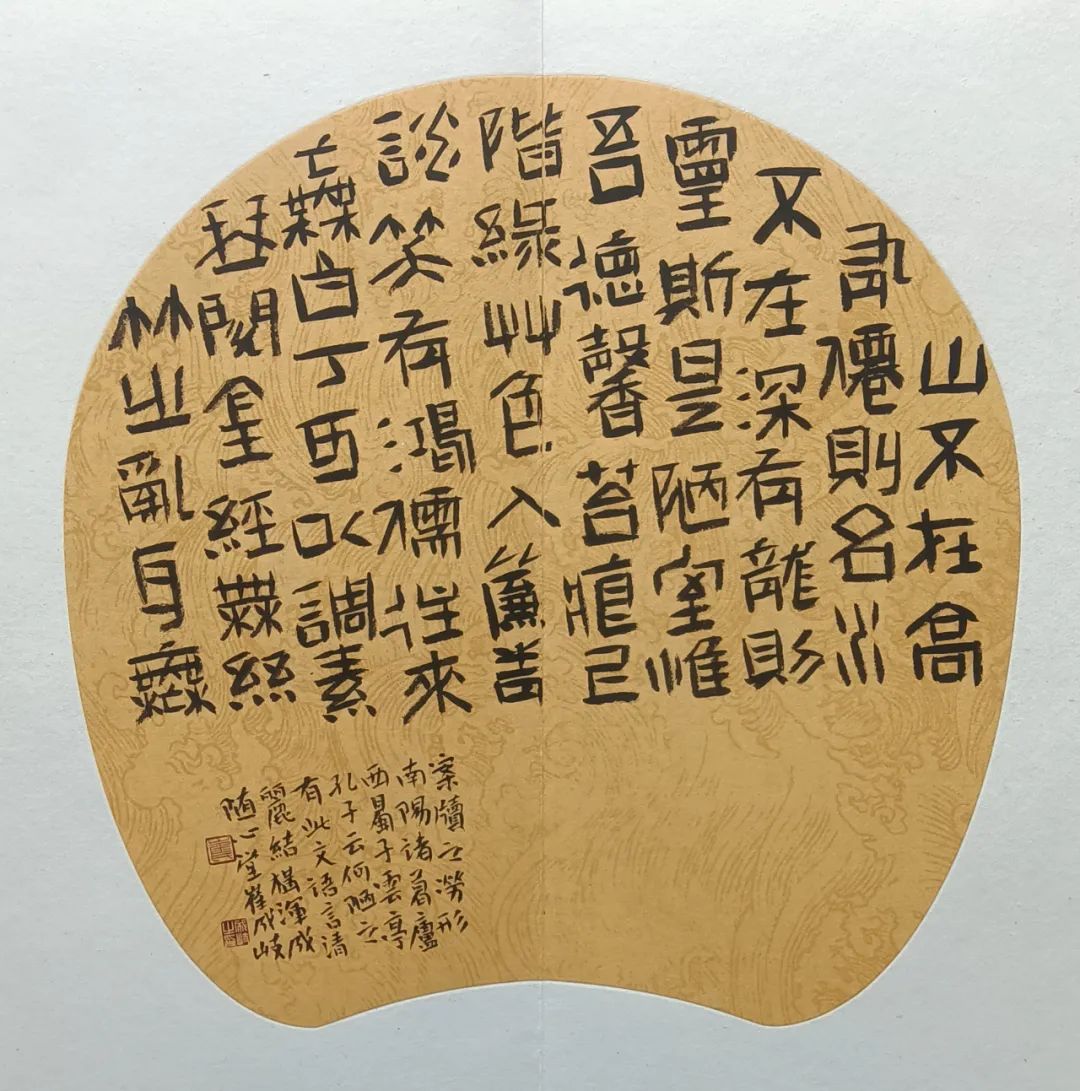 山不在高
有僊則名水
不在深有龍則
靈斯是陋室惟
吾德馨苔痕已
階綠艸色入簾青
談笑有鴻儒往來
無白丁可以調素
琴閱金經無絲
竹之亂耳無
案牘之勞形
南陽諸葛廬
西蜀子雲亭
孔子云何陋之
有此文語言清
麗結構渾成
随心堂崔成岐